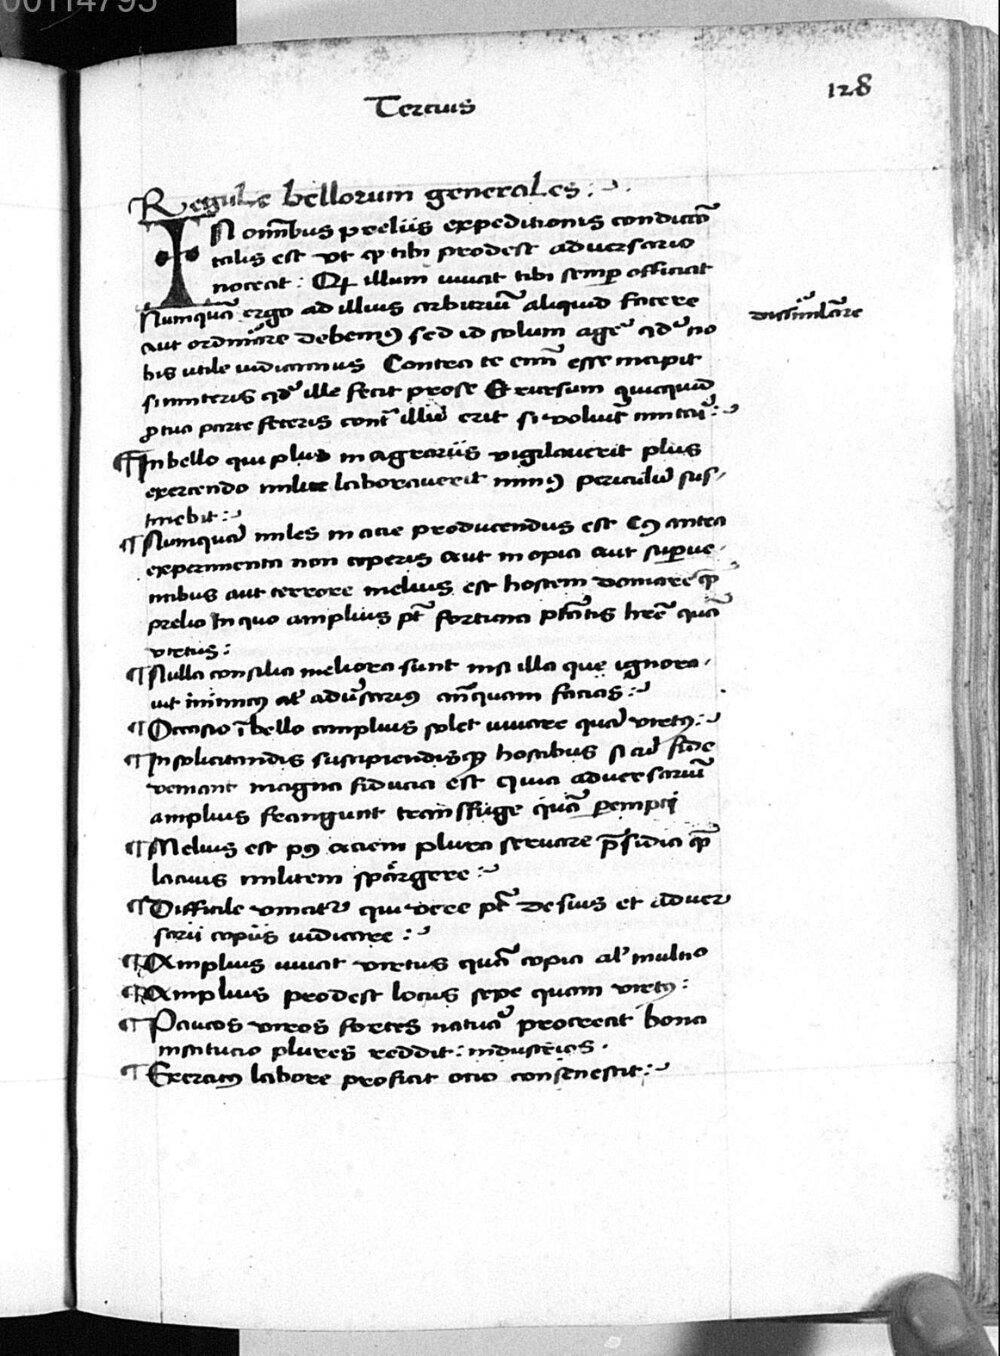 00114795
Tercius
128
Regule bellorum generales :
IN omībus preliis expeditionis condictō
talis est ut qp tibi prodest adversario
noceat : Qđ illum iuvat tibi semp officiat
Numquā ergo ad illius arbitriū aliquid facere
dissimlāre
aut ordināre debemꝰ sed id solum agē qđ no
bis utile iudicamus Contra te enī esse incipit
si imiteris qđ ille fecit pro se Et rursum quicquid
ꝓ tua parte feceris contᵃ illū erit si voluīt imitari :
¶ In bello qui plus in agrariis vigilaverit plus
exercendo milite laboraverit minꝰ periculū sus
tinebit :
¶ Numquā miles in acie producendus est Cꝰ antea
experimenta non ceperis Aut inopia aut supve
nientibus aut terrore melius est hostem domare qp
prelio In quo amplius pt̄ fortuna ptātis hrē quā
virtus :
¶ Nulla consilia meliora sunt nisi illa que ignora
vit inimicꝰ al' adūsariꝰ anteq̄uam facias :
¶ Occasio ī bello amplius solet iuvare quā virtꝰ :
¶ In solicitandis suscipiendisqꝫ hostibus si cū fide
veniant magna fiducia est Quia adversariū
amplius frangunt transfuge quā perempti
¶ Melius est pꝰ aciem plura servare p̄sidia qp
lacius militem spārgere :
¶ Difficile vincitᵘʳ qui vere pt̄ de suis et adver
sarii copiis iudicare :
¶ Amplius iuvat virtus quā copia al' multio
¶ Amplius prodest locus sepe quam virtꝰ :
¶ Paucos viros fortes natura procreat bona
institucio plures reddit : industrios .
¶ Exercitꝰ labore proficit ocio consenescit :